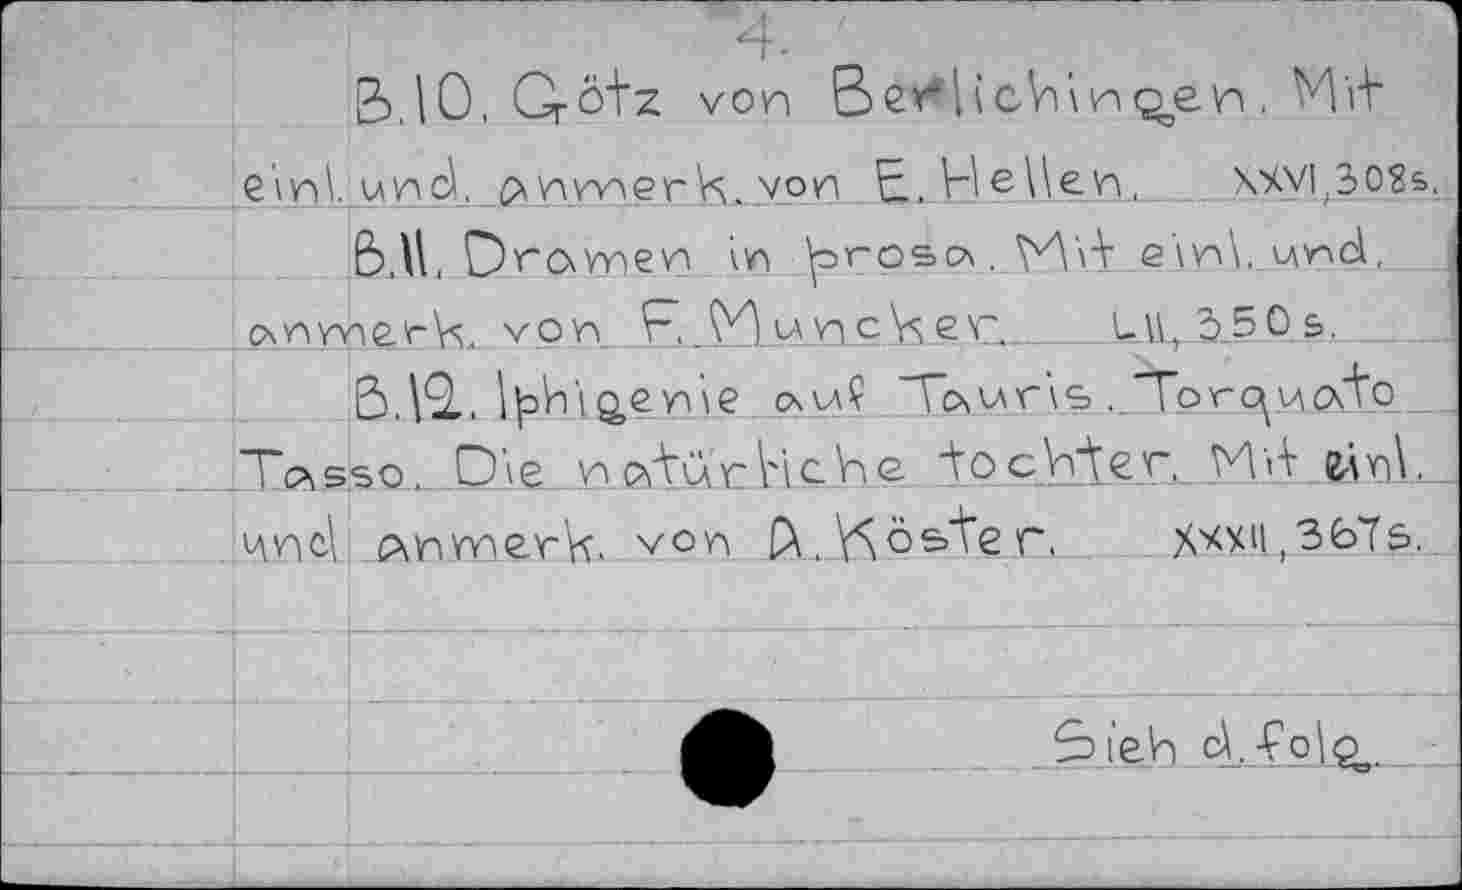 4.
B.10. Götz von Berlichingen. Mit
einl. und. anmerk. von E. Hellen. XXVI, 308s.
B.11. Dramen in prosa. Mit einl. und.
anmerk. von F. Muncker. LII, 350s.
B.12. Iphigenie auf Tauris. Torquato
Tasso. Die natürliche tochter. Mit einl.
und anmerk. von A. Köster. XXXII, 367s.
Sieh d. folg.